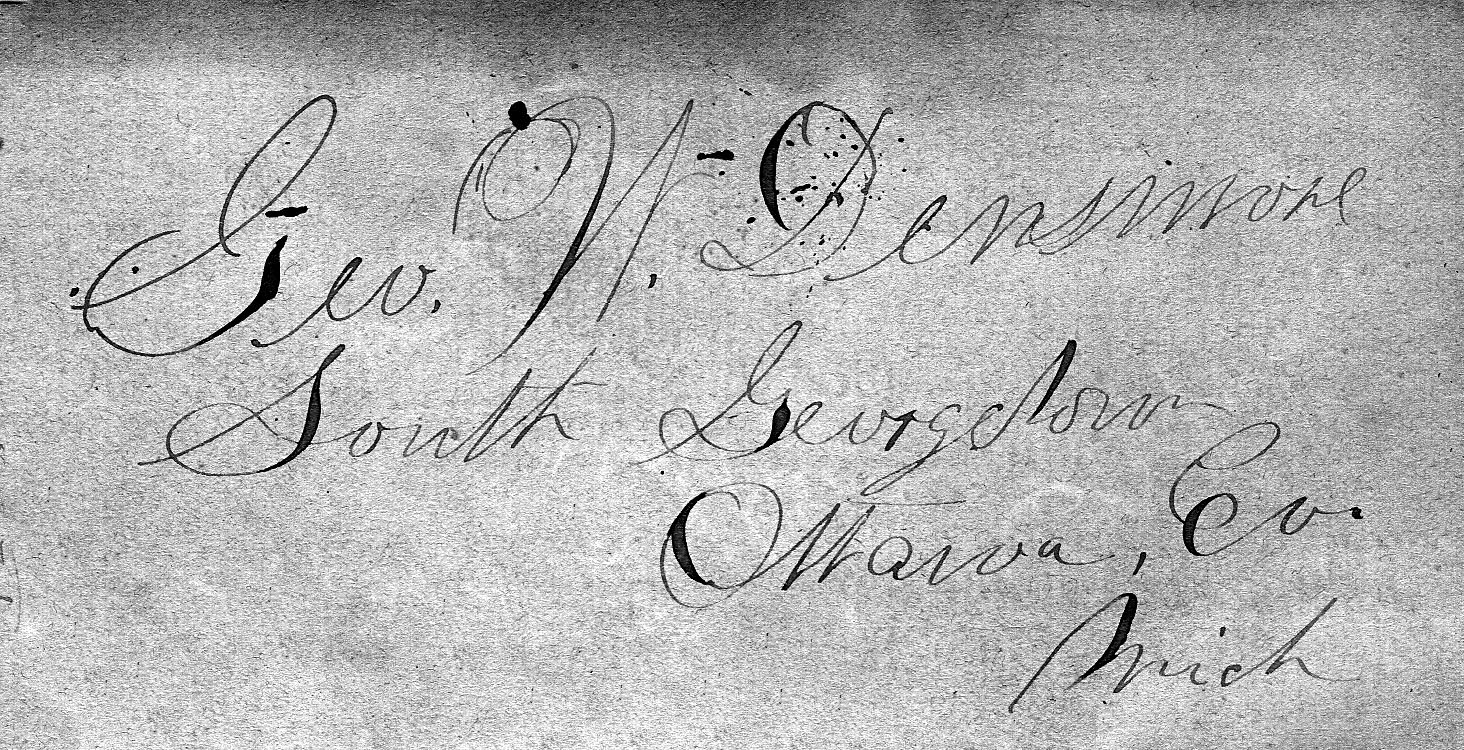 Geo. W. Densmore
South Georgetown
Ottawa, Co.
Mich